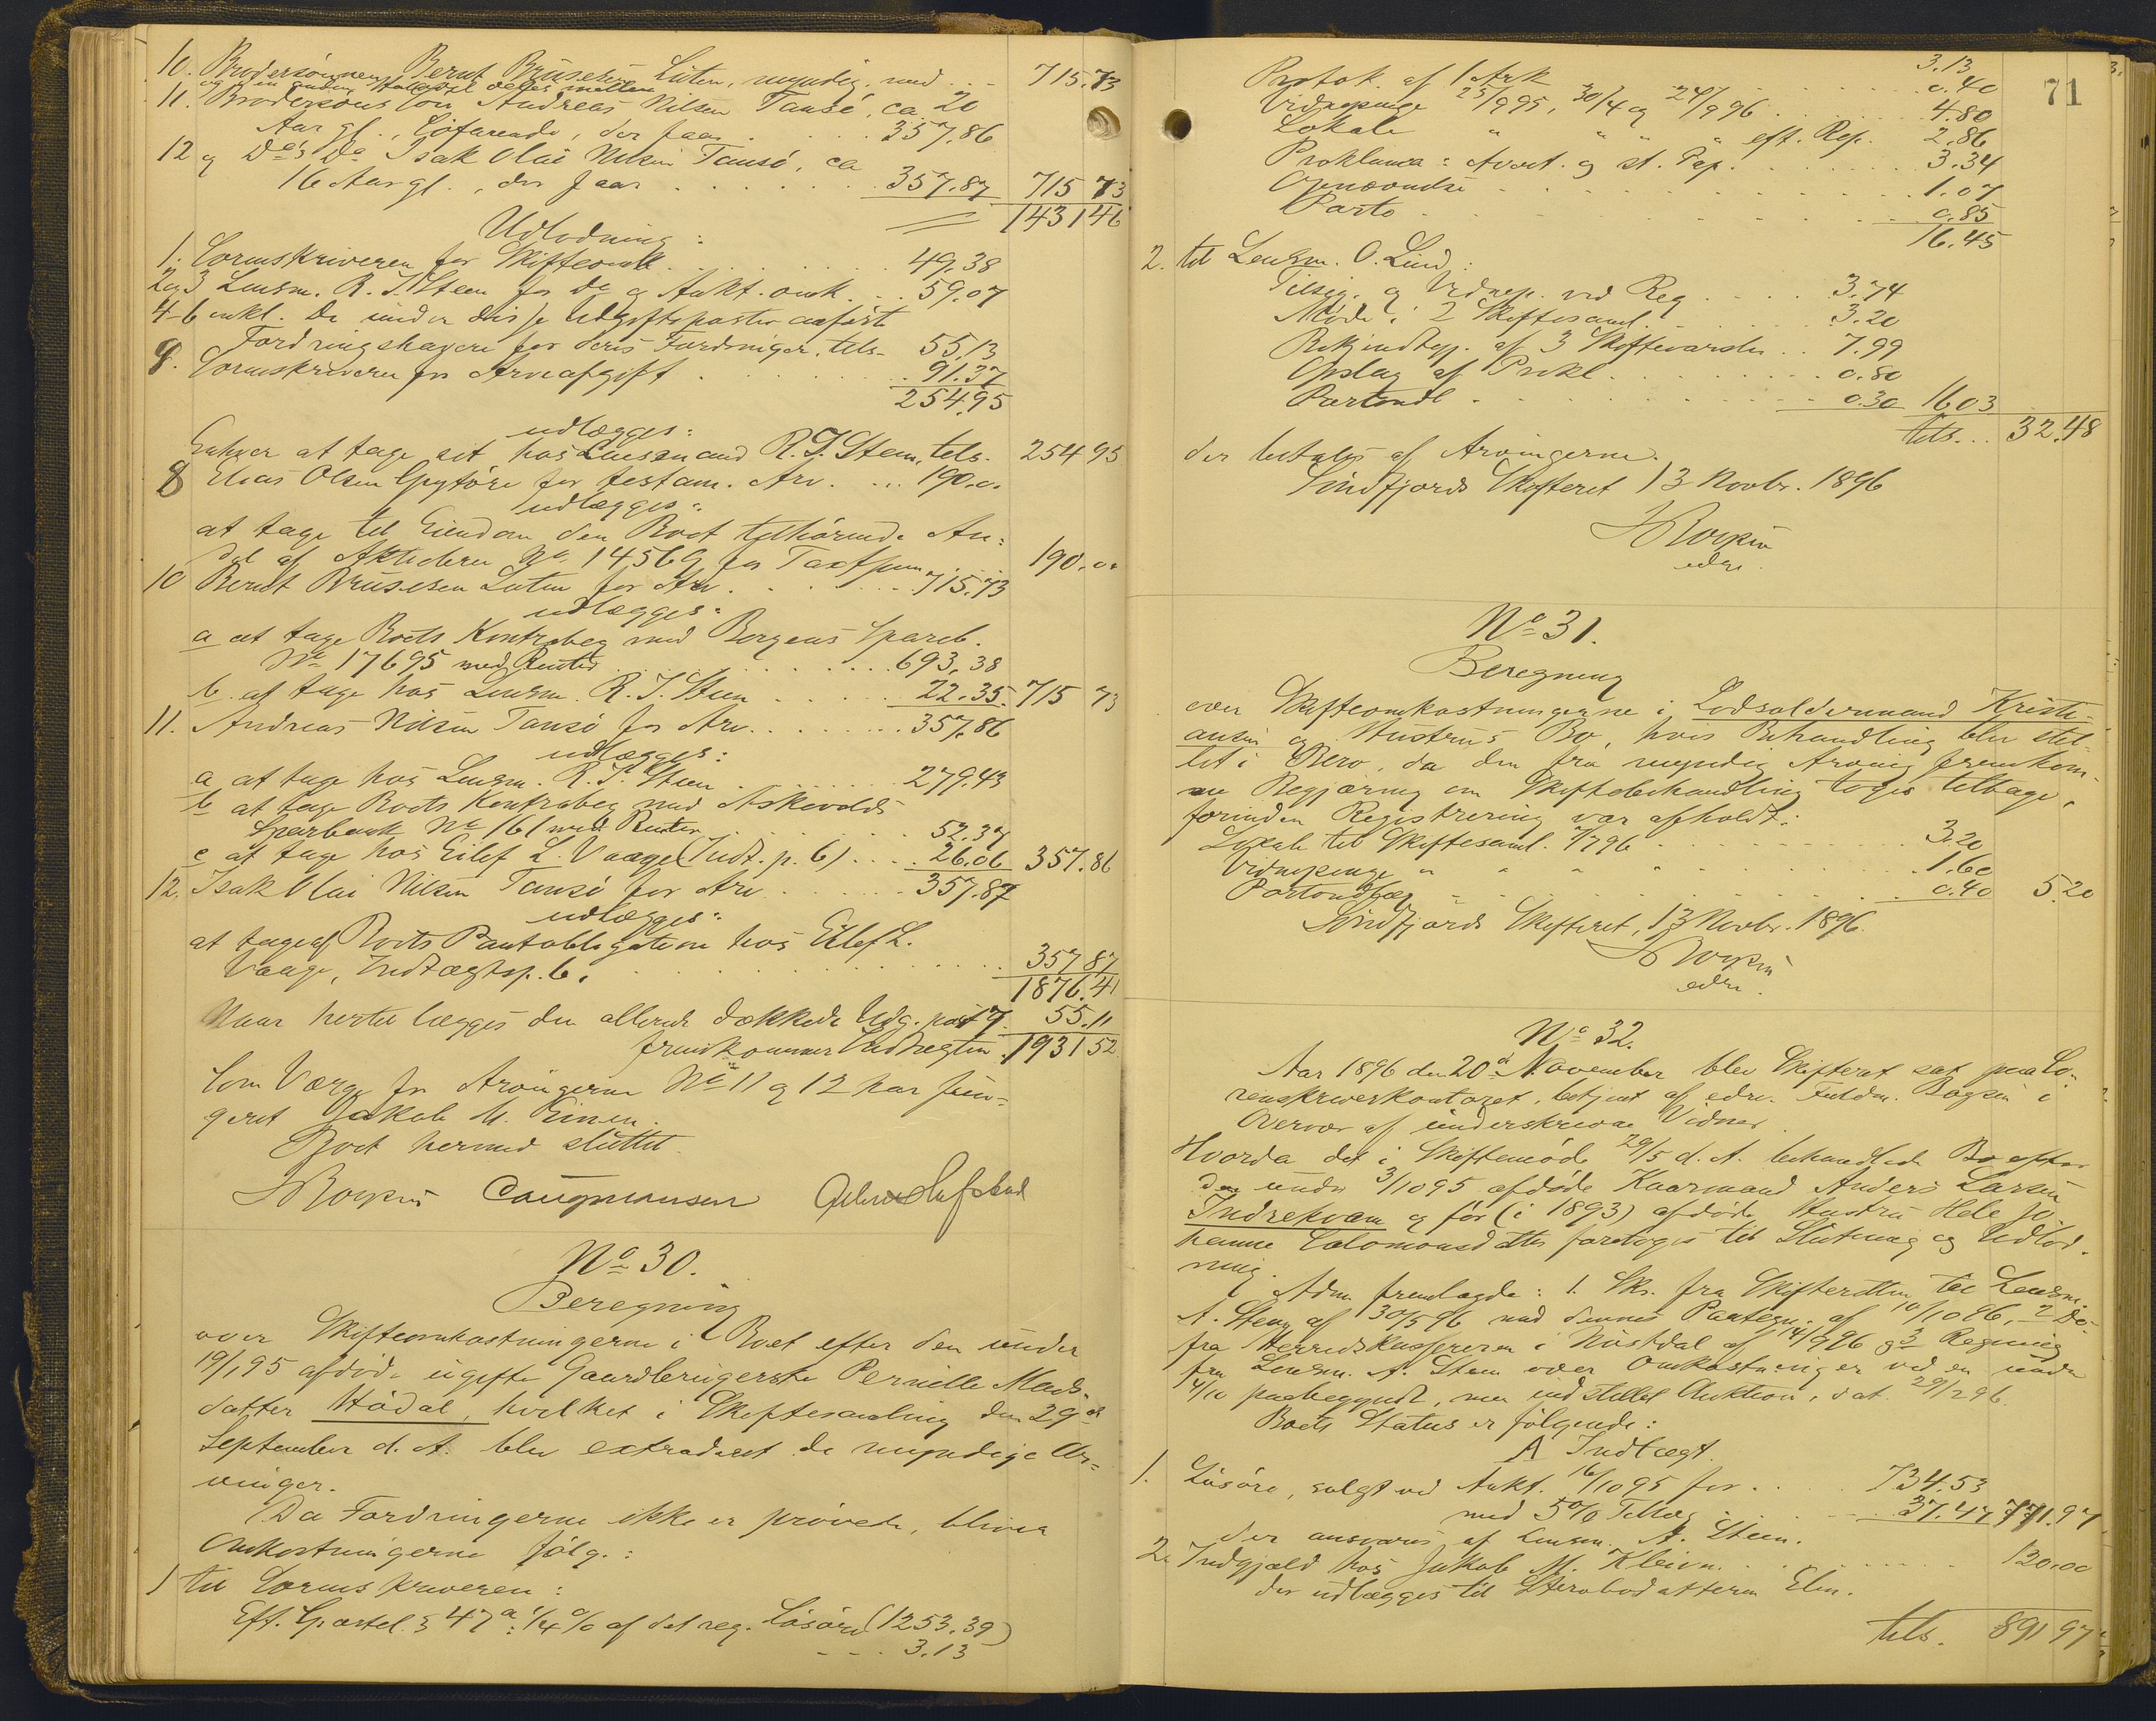 10. Brodersønnen Bernt Brusesen Liten, myndig, med . . - 715.73
og den anden Halvdel deles mellem
11. Brodersøns Søn Andreas Nilsen Tansø, ca. 20
Aar gl., Søfarende, der faar . . . . 357.86
12 og Do's Do Isak Olai Nilsen Tansø, ca
16 Aar gl., der faar . . . . . . 357.87 715 73
1431 46
Udlodning:
1. Sorenskriveren for Skifteomk. . . . . . . 49.38
2 og 3 Lensm. R. T. Steen for Do og Aukt. omk. . . 59.07
4-6 inkl. De under disse Udgiftsposter anførte
Fordringshavere for deres Fordringer, tils. 55.13
9. Sorenskriveren for Arveafgift . . . . . . 91.37
254.95
udlægges:
Enhver at tage sit hos Lensmand R. T. Steen, tils. 254 95
8 Elias Olsen Grytøre for testam. Arv. . . . 190.0.
udlægges:
at tage til Eiendom den Boet tilhørende An-
del af Aktiebrev No 14569 for Taxtsum . . 190.00
10 Berndt Brusesen Liten for Arv . . . . 715.73
udlægges:
a at tage Boets Kontrabog med Bergens Spareb.
No 17695 med Renter . . . . . . . 693.38
b. at tage hos Lensm. R. T. Steen . . . . 22.35. 715 73
11. Andreas Nilsen Tansø for Arv. . . . . . 357.86
udlægges:
a at tage hos Lensm. R. T. Steen . . . . . 279.43
b at tage Boets Kontrabog med Askevolds
Sparebank No 161 med Renter . . . . . . 52.37
c at tage hos Eilef L. Vaage (Indt. p. 6) . . . . 26.06 357.86
12. Isak Olai Nilsen Tansø for Arv . . . . . 357.87
udlægges:
at tage af Boets Pantobligation hos Eilef L.
Vaage, Indtægtsp. 6. . . . . . . . . . . 357 87
1876.41
Naar hertil lægges den allerede dækkede Udg. post 7. 55.11
fremkommer Indtægten . 1931 52
Som Værge for Arvingerne No 11 og 12 har fun-
geret Jakob M. Einen.
Boet hermed sluttet.
No 30.
Beregning
over Skifteomkostningerne i Boet efter den under
19/1 95 afdøde ugifte Gaardbrugerske Pernille Mads-
datter Hødal, hvilket i Skiftesamling den 29de
September d. A. blev extraderet de myndige Ar-
vinger.
Da Fordringerne ikke er prøvede, bliver
Omkostningerne følg.:
1 til Sorenskriveren:
Eft. Sportel. § 47 a: 1/4 % af det reg. Løsøre (1253.39)
- - - 3.13
71
3.13
Protok. af 1 Ark . . . . . . . 0.40
Vidnepenge 25/9 95, 30/4 og 24/9 96 . . . . . . 4.80
Lokale " " " " eft. Rep. 2.86
Proklama: Avert. og st. Pap. . . . . . . 3.34
Gjenvendse . . . . . . . . . 1.07
Porto . . . . . . . . . . 0.85
16.45
2. til Lensm. O. Lind:
Tilsig. og Vidnep. ved Reg . . . . 3.74
Møde i 2 Skiftesaml. . . . . . 3.20
Bekjendtgj. af 3 Skiftevarsler . . 7.99
Opslag af Prokl. . . . . . . . 0.80
Portoudl . . . . . . . . . 0.30 16 03
tils. . . 32.48
der betales af Arvingerne.
Søndfjords Skifteret 13 Novbr. 1896
edsv.
No 31.
Beregning
over Skifteomkostningerne i Lodsoldermand Kristi-
ansens og Hustrus Bo, hvis Behandling blev stil-
let i Bero, da den fra myndig Arving fremkom-
ne Begjæring om Skiftebehandling toges tilbage,
forinden Registrering var afholdt:
Lokale til Skiftesaml. 7/7 96 . . . . . . . 3.20
Vidnepenge " " " " . . . . . . 1.60
Portoudlæg . . . . . . . . . 0.40 5.20
Søndfjords Skifteret, 13 Novbr. 1896.
edsv.
No 32.
Aar 1896 den 20de November blev Skifteret sat paa So-
renskriverkontoret, betjent af edsv. Fuldm. Bogsen i
Overvær af underskrevne Vidner.
Hvorda det i Skiftemøde 29/5 d. A. behandlede Bo efter
den under 3/10 95 afdøde Kaarmand Anders Larsen
Indrekvam og før (i 1893) afdøde Hustru Hele Jo-
hanne Salomonsdatter foretoges til Slutning og Udlod-
ning.
Adm. fremlagde: 1. Skr. fra Skifteretten til Lensm.
A. Steen af 30/5 96 med dennes Paategn. af 10/10 96, 2 Do
fra Herredskassereren i Nøstdal af 14/9 96 og 3 Regning
fra Lensm. A. Steen over Omkostninger ved en under
4/10 paabegyndt, men indstillet Auktion, dat. 29/2 96.
Boets Status er følgende:
A Indtægt.
1. Løsøre, solgt ved Aukt. 16/10 95 for . . . . 734.53
med 5% Tillæg . . . . . 37.47 771.97
der ansvares af Lensm. A. Steen.
2. Indgjæld hos Jakob M. Kleivn. . . . . . . . . 120.00
der udlægges til Sterbodatteren Elen.
tils. 891 97